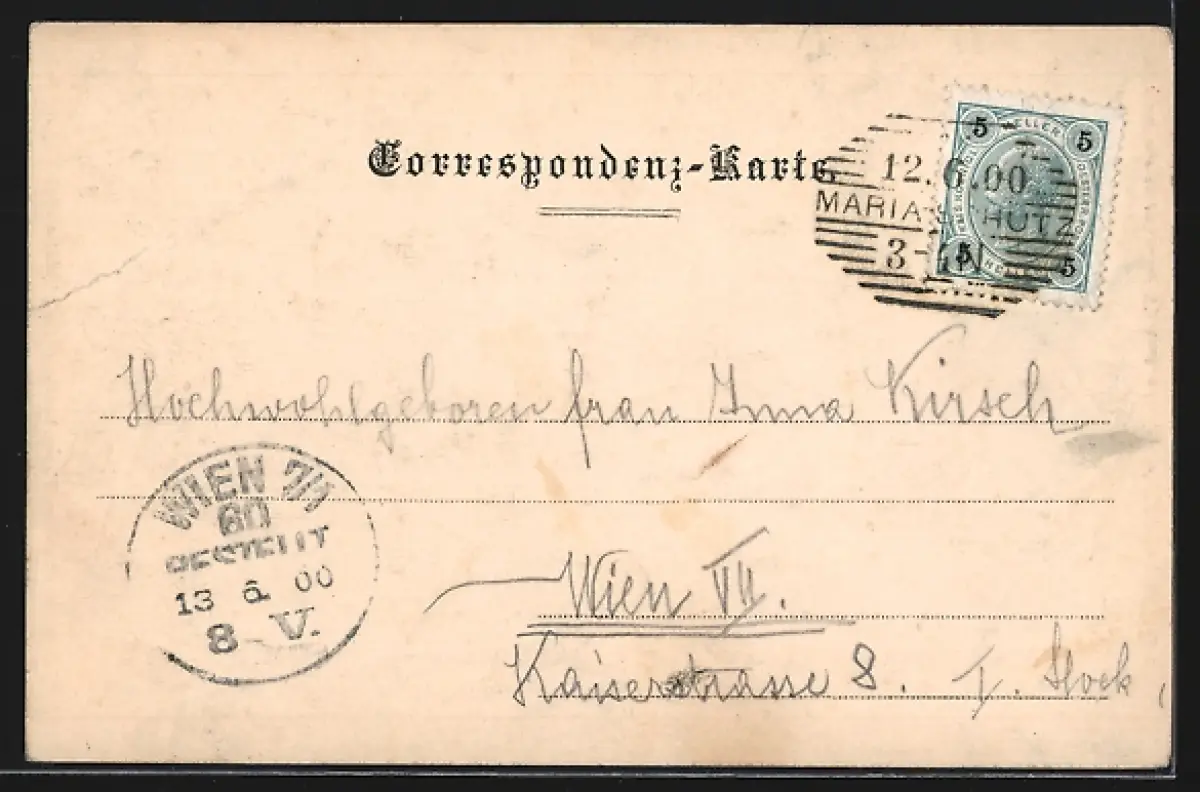 Correspondenz-Karte.
5 HELLER 5
12.6.00
MARIA-SCHUTZ
3-
5 5
Hochwohlgeboren frau Anna Kirsch
WIEN 7/1
60
BESTELLT
13 6. 00
8 V.
Wien VII.
Kaiserstrasse 8. I. Stock